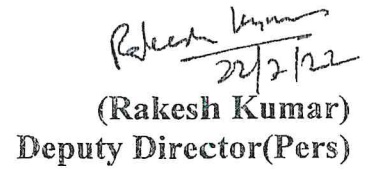 Rakesh Kumar
22/2/22
(Rakesh Kumar)
Deputy Director(Pers)